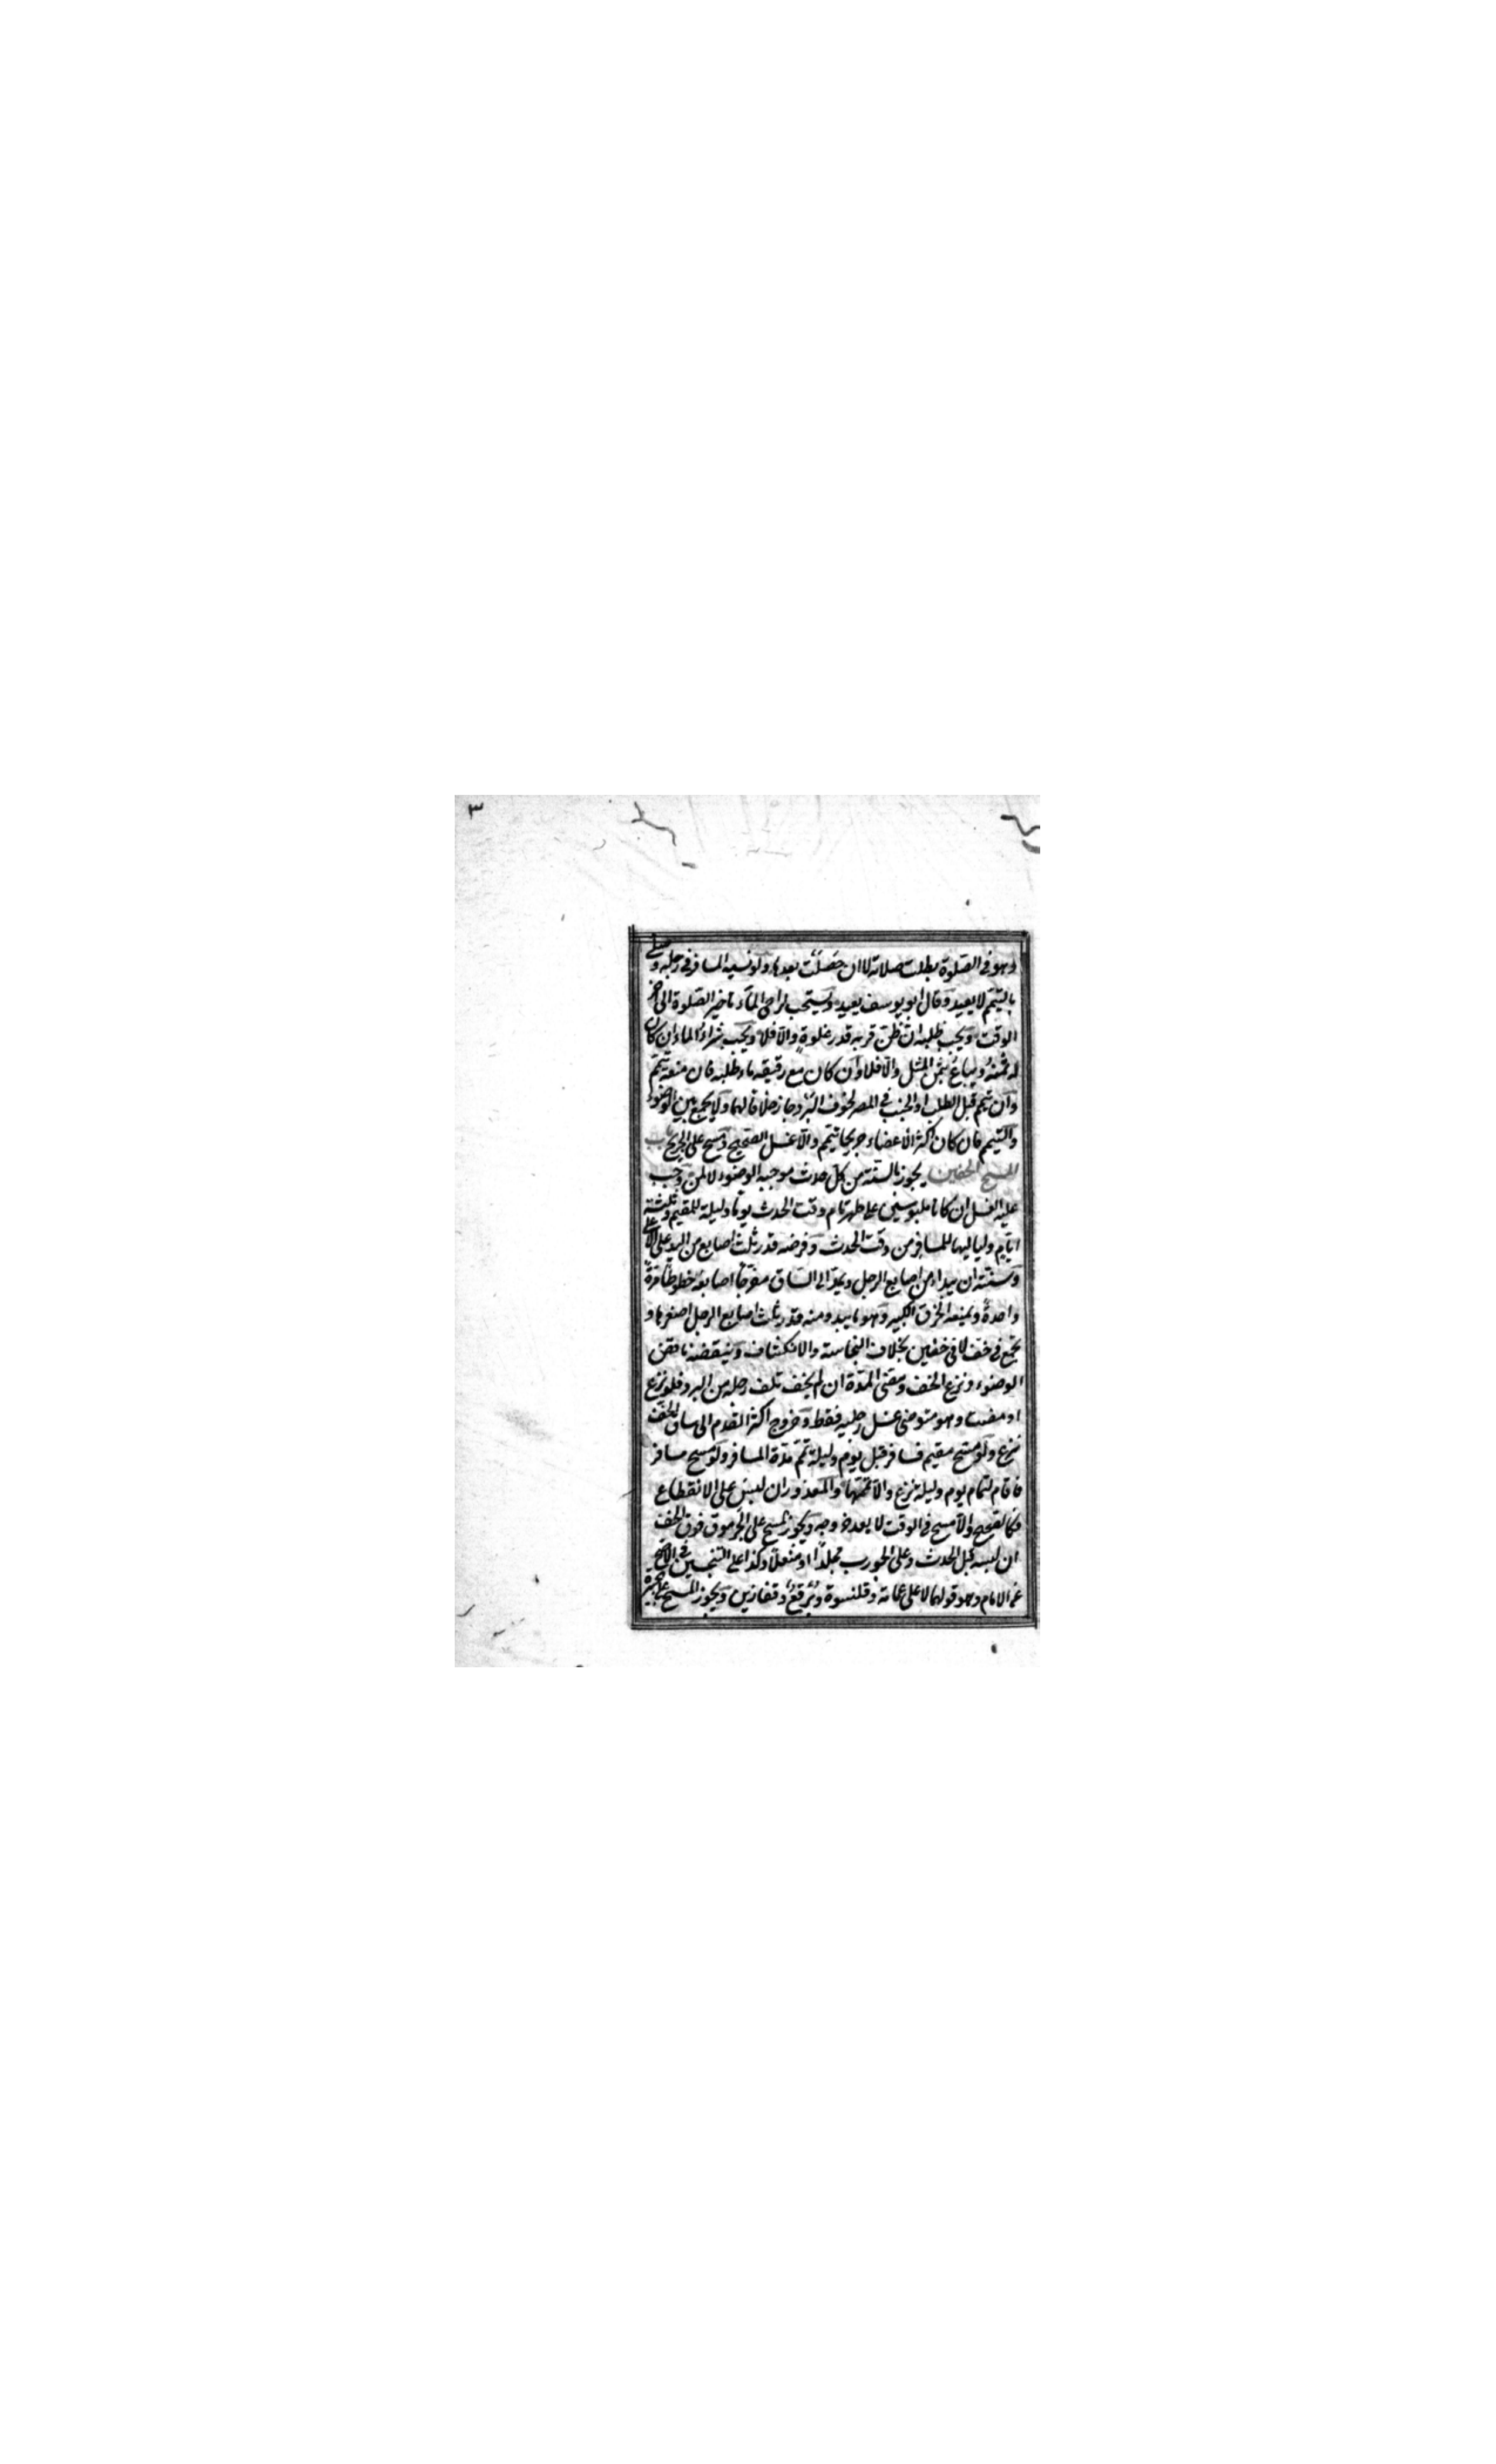 ٣
وهو في الصلوة بطلت صلاته لا ان حصلت بعدها ولو نسيه المسافر في رحله وصلى
بالتيمم لا يعيد وقال ابو يوسف يعيد ويستحب لراجى الماء تاخير الصلوة الى اخر
الوقت ويجب طلبه ان ظن قربه قدر غلوة والا فلا ويجب شراء الماء ان كان
له ثمنه ويباع بثمن المثل والا فلا وان كان مع رفيقه ماء طلبه فان منعه تيمم
وان تيمم قبل الطلب او الجنب في المصر لخوف البرد جاز خلافا لهما ولا يجمع بين الوضوء
والتيمم فان كان اكثر الاعضاء جريحا تيمم والا غسل الصحيح ومسح على الجريح باب
المسح الخفين يجوز بالسنة من كل حدث موجبه الوضوء لا لمن وجب
عليه الغسل ان كانا ملبوسين على طهر تام وقت الحدث يوما وليلة للمقيم وثلثة
ايام ولياليها للمسافر من وقت الحدث وفرضه قدر ثلث اصابع من اليد على الاعلى
وسنته ان يبداء من اصابع الرجل ويمد الى الساق مفرجا اصابعه خطوطا مرة
واحدة ويمنعه الخرق الكبير وهو ما يبدو منه قدر ثلث اصابع الرجل اصغرها و
تجمع في خف لا في خفين بخلاف النجاسة والانكشاف وينقضه ناقض
الوضوء ونزع الخف ومضى المدة ان لم يخف تلف رجله من البرد فلو نزع
او مضت وهو متوضئ غسل رجليه فقط وخروج اكثر القدم الى ساق الخف
نزع ولو مسح مقيم فسافر قبل يوم وليلة تمم مدة المسافر ولو مسح مسافر
فاقام لتمام يوم وليلة نزع والا تممها والمعذور ان لبس على الانقطاع
فكالصحيح والا مسح في الوقت لا بعد خروجه ويجوز المسح على الجرموق فوق الخف
ان لبسه قبل الحدث وعلى الجورب مجلدا او منعلا وكذا على الثخين في الاصح
عن الامام وهو قولهما لا على عمامة وقلنسوة وبرقع وقفازين ويجوز المسح على الجبيرة